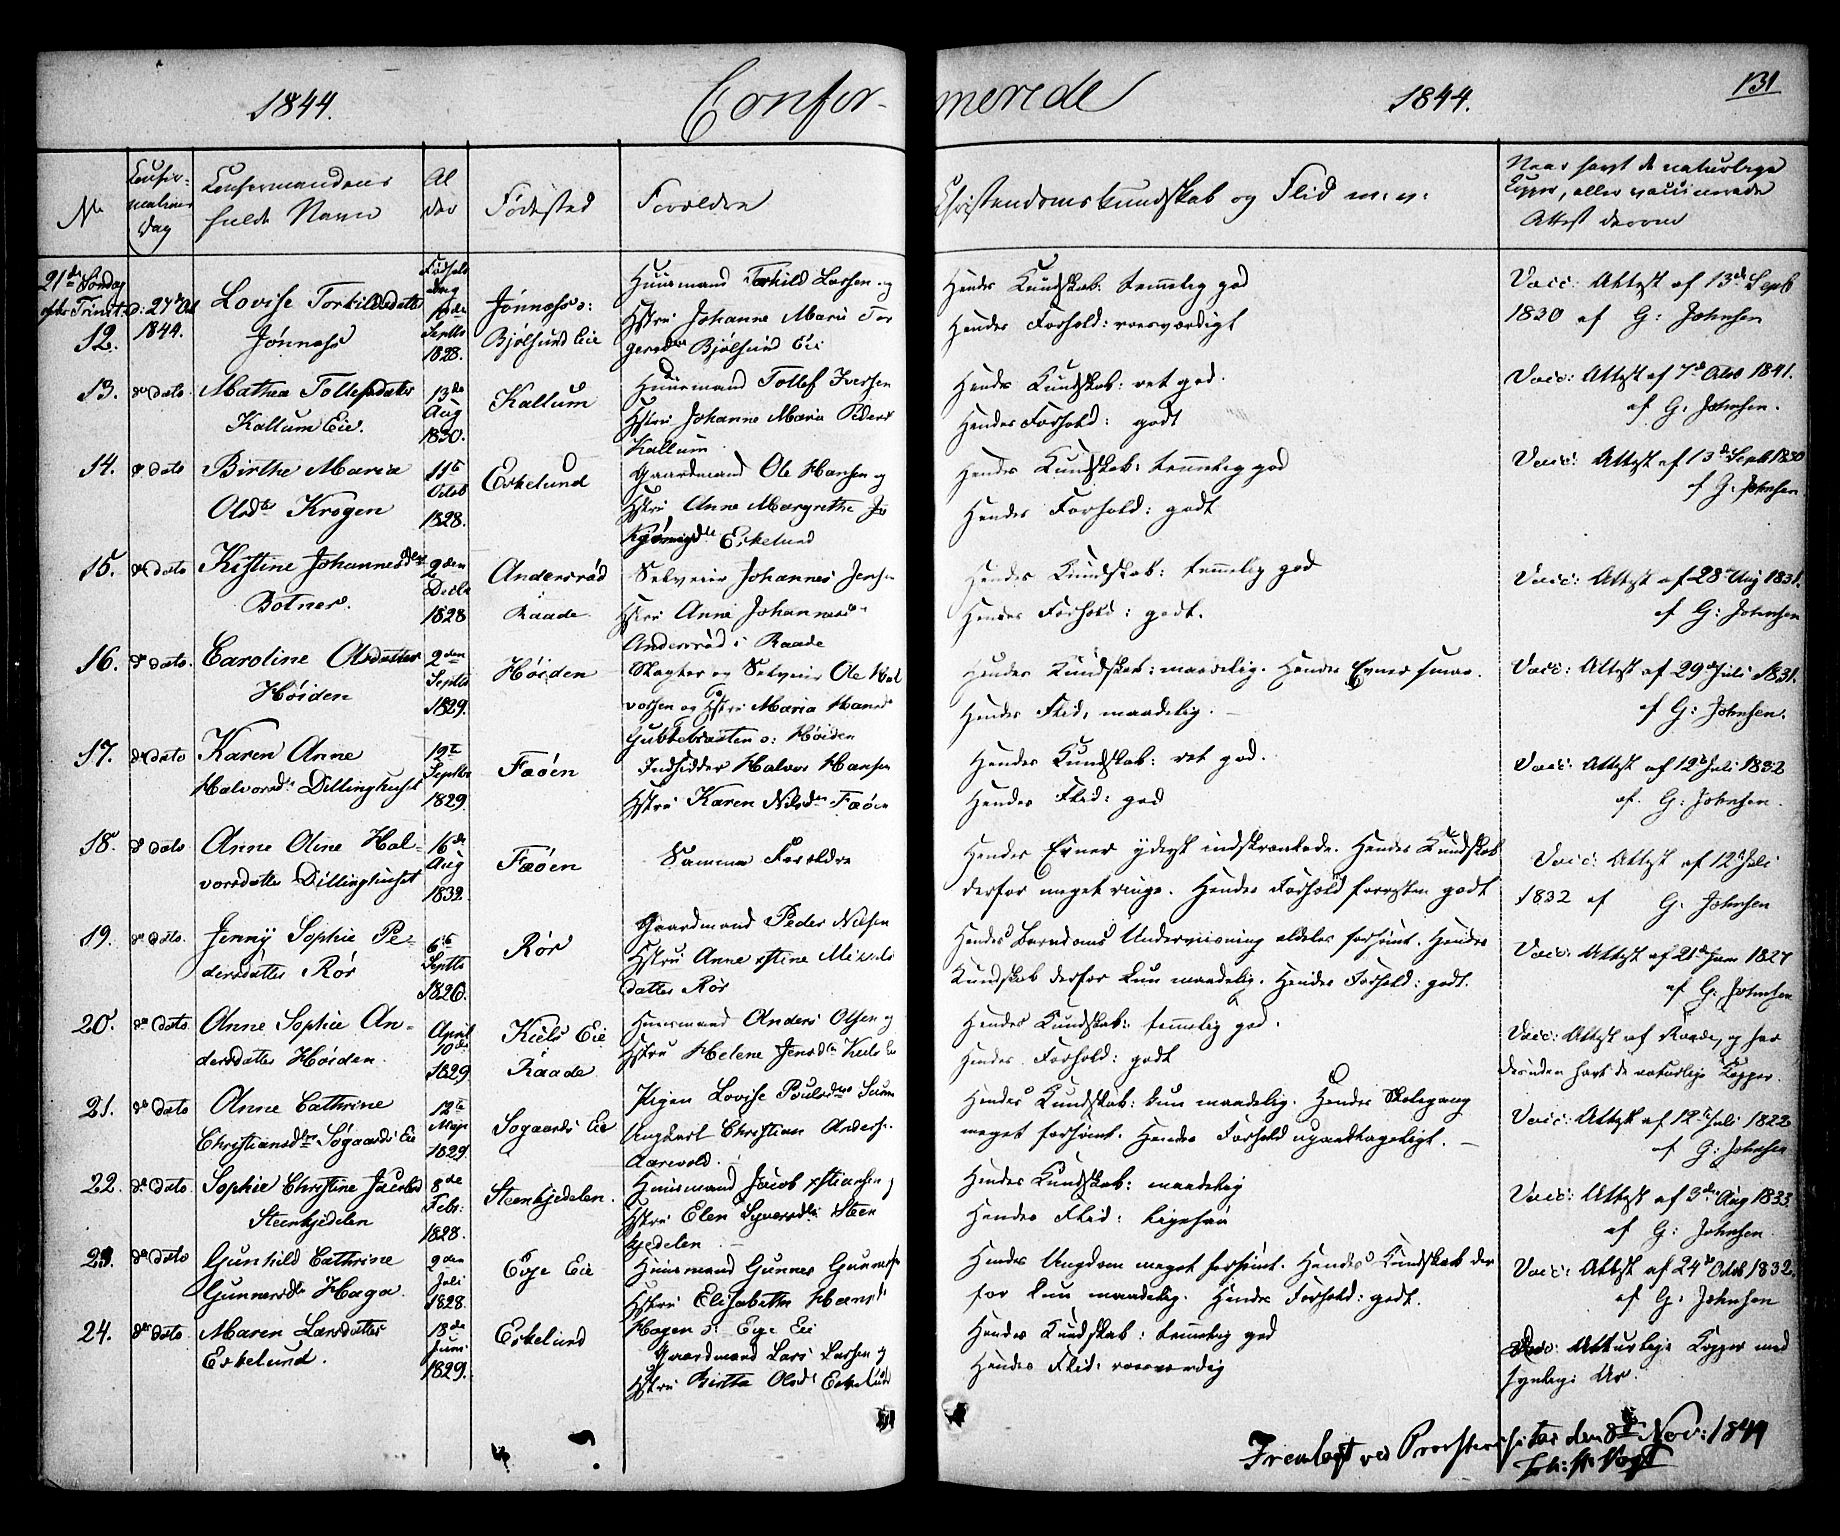 1844. Confir- merede 1844. 131
No
Confir-
mations
Dag
Confirmandens
fulde Navn
Al
der
Fødested
Forældre
Christendomskundskab og Flid m: v:
Naar havt de naturlige
Kopper, eller vaccinerede
Attest derom
21de Søndag
efter Trinit: d: 27de Oct
12. 1844.
Lovise Torkildsdatter
Jønnæss
Fødsels
dag
Septbr
1828.
Jønnæss o:
Bjølsund Eie
Huusmand Torkild Larsen og
Hstru Johanne Marie Tor
gersdtr Bjølsund Eie
Hendes Kundskab: temmelig god
Hendes Forhold: roesværdigt
Vacc: Attest af 13de Septb
1830 af G: Johnsen
13. do dato
Mathea Tollefsdatter
Kallum Eie.
13de
Aug
1830.
Kallum
Huusmand Tollef Iversen
Hstru Johanne Maria Peders
Kallum
Hendes Kundskab: ret god.
Hendes Forhold: godt
Vacc: Attest af 7de Octb 1841.
af G. Johnsen.
14. do dato
Birthe Maria
Olsdtr Krogen
11te
Octob
1828.
Eskelund
Gaardmand Ole Hansen og
Hstru Anne Margrethe
Eskelund
Hendes Kundskab: temmelig god
Hendes Forhold: godt
Vacc: Attest af 13de Septb 1830
af G. Johnsen.
15. do dato
Kistine Johannesd
Botner.
2den
Decbr
1828
Andersrød
Raade
Selveier Johannes Jensen
Hstru Anne Johannesd
Andersrød i Raade
Hendes Kundskab: temmelig god
Hendes Forhold: godt.
Vacc: Attest af 28de Aug 1831.
af G: Johnsen
16. do dato.
Caroline Olsdatter
Høiden
2den
Septbr
1829.
Høiden
Slagter og Selveier Ole Hal
vorsen og Hstru Maria Hansd
Gubbekasten o: Høiden
Hendes Kundskab: maadelig. Hendes Evner smaa.
Hendes Flid: maadelig. —
Vacc: Attest af 29de Juli 1831.
af G: Johnsen.
17. do dato
Karen Anne
Halvorsd: Dillinghuset
19te
Septbr
1829.
Fæøen
Indsidder Halvor Hansen
Hstru Karen Nilsdtr Fæøen
Hendes Kundskab: ret god.
Hendes Flid: god
Vacc: Attest af 12te Juli 1832
af. G: Johnsen.
18. do dato
Anne Oline Hal-
vorsdatter Dillinghuset
16de
Aug
1832.
Fæøen
Samme Forældre
Hendes Evner yderst indskrænkede. Hendes Kundskab
derfor meget ringe. Hendes Forhold forresten godt
Vacc: Attest af 12te Juli
1832 af G. Johnsen
19. do dato.
Jenny Sophie Pe-
dersdatter Rør
6te
Septbr
1826.
Rør
Gaardmand Peder Nilsen
Hstru Anne xstine
datter Rør
Hendes Barndoms Underviisning aldeles forsømt. Hendes
Kundskab derfor kun maadelig. Hendes Forhold: godt.
Vacc: Attest af 21de Juni 1827
af G: Johnsen
20. do dato.
Anne Sophie An-
dersdatter Høiden.
April
10de
1829
Kiels Eie
Raade
Huusmand Anders Olsen og
Hstru Helene Jensdtr Kiels
Hendes Kundskab: temmelig god.
Hendes Forhold: godt
Vacc: Attest af Raade, og har
desuden havt de naturlige Kopper.
21. do dato
Anne Cathrine
Christiansdtr Søgaards Eie
12te
Maj
1829.
Sogaards Eie
Pigen Lovise Poulsdtr
Ungkarl Christian Anders.
Aarevold.
Hendes Kundskab: kun maadelig. Hendes Skolegang
meget forsømt. Hendes Forhold upaaklageligt. —
Vacc: Attest af 12te Juli 1822
af G: Johnsen
22. do dato
Sophie Christine Jacobsd
Steenkjedelen
8de
Febr:
1828.
Steenkjedelen.
Huusmand Jacob xstiansen
Hstru Elen Syversdtr Steen
kjedelen
Hendes Kundskab: maadelig
Hendes Flid: ligesaa
Vacc: Attest af 3die Aug 1833.
af G: Johnsen.
23. do dato
Gunhild Cathrine
Gunnersdtr Haga.
9den
Juli
1828.
Evje Eie
Huusmand Gunner Gunnersen
Hstru Elisabethe Hansd
Hagen o: Evje Eie
Hendes Ungdom meget forsømt. Hendes Kundskab der
for kun maadelig. Hendes Forhold: godt.
Vacc: Attest af 24de Octob 1832.
af G: Johnsen
24. do dato
Maren Larsdatter
Eskelund.
18de
Juni
1829.
Eskelund
Gaardmand Lars Larsen og
Hstru Birthe Olsd: Eskelund
Hendes Kundskab: temmelig god
Hendes Flid: roesværdig
naturlige Kopper med
synlige Ar.
Fremlagt ved Provstevisitas den 8de Nov: 1844
Vogt